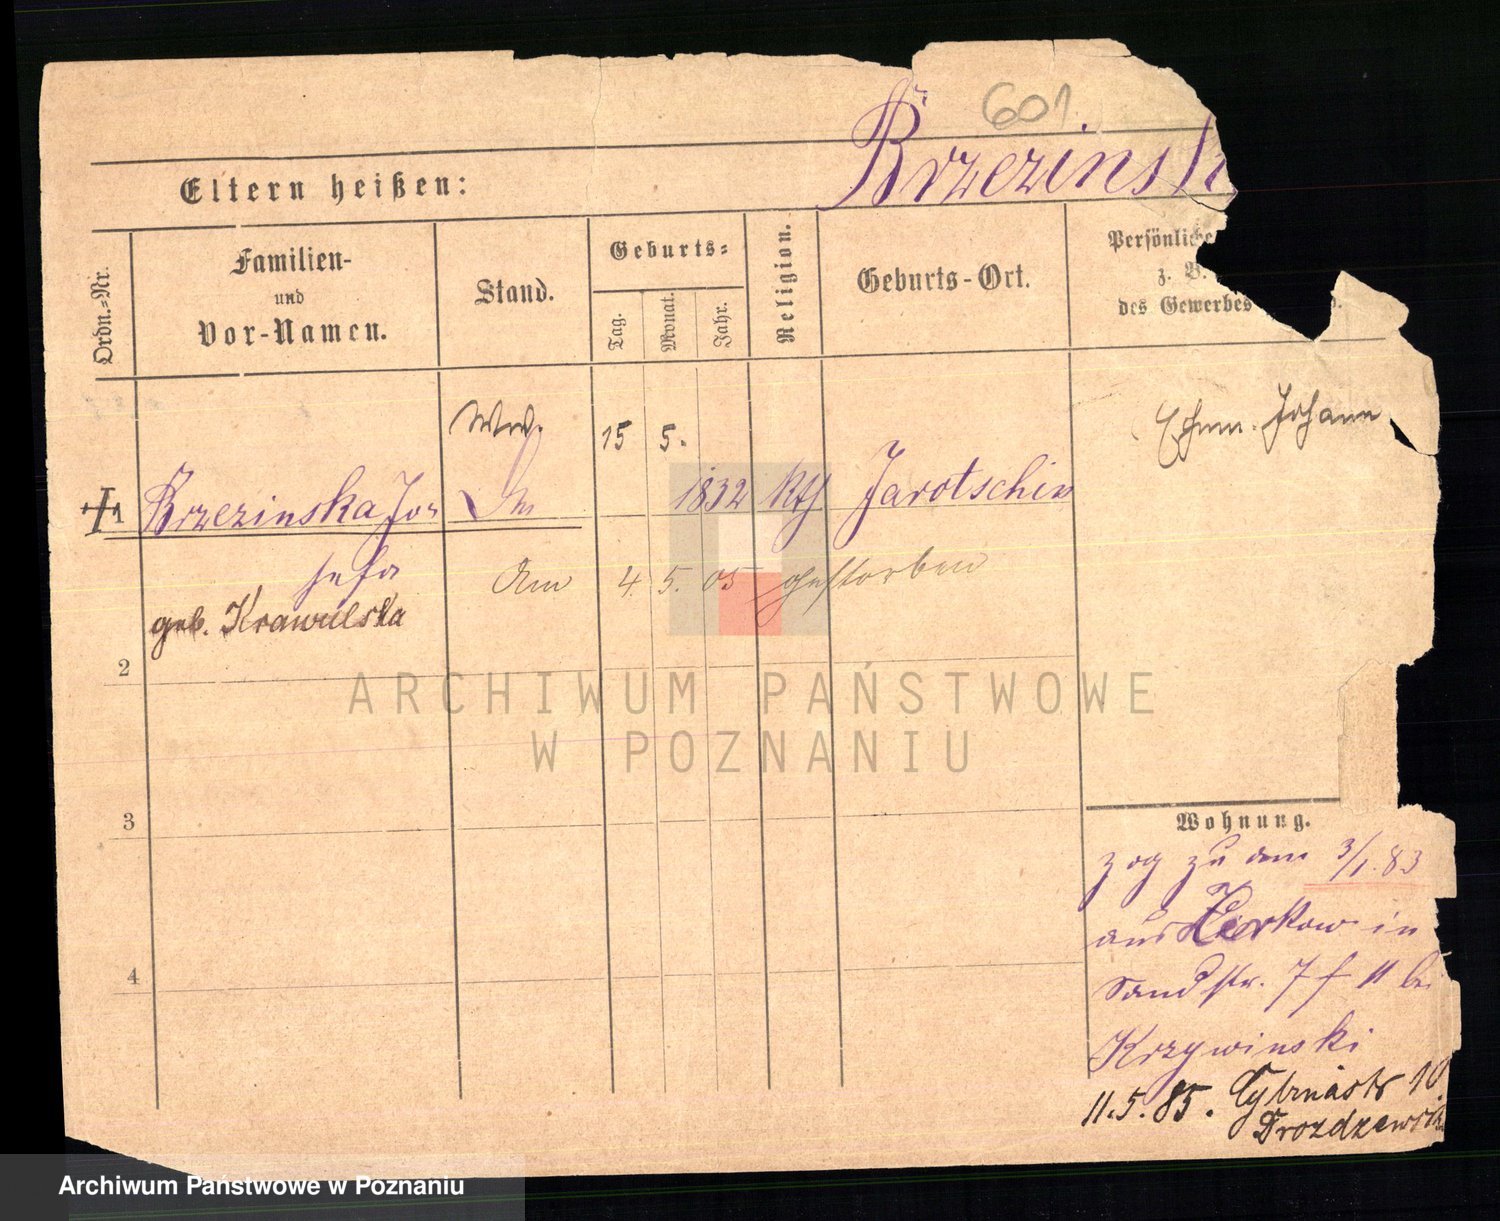 601.
Brzezinski
Eltern heißen:
Ordn.-Nr.
Familien-
und
Vor-Namen.
Stand.
Geburts-
Tag.
Monat.
Jahr.
Religion.
Geburts-Ort.
Persönliche
z. B.
des Gewerbes
Ww.
15 5.
Ehem. Johann
1 Brzezinska Jo-
1832 kth Jarotschin
sefa
Am 4. 5. 05 gestorben
geb. Krawulska
2
ARCHIWUM PAŃSTWOWE
W POZNANIU
3
Wohnung.
zog zu am 3/1. 83
aus Zerkow in
Sandstr. 7 f 11 bei
Krzywinski
4
11.5.85. 10
Drozdzewski
Archiwum Państwowe w Poznaniu